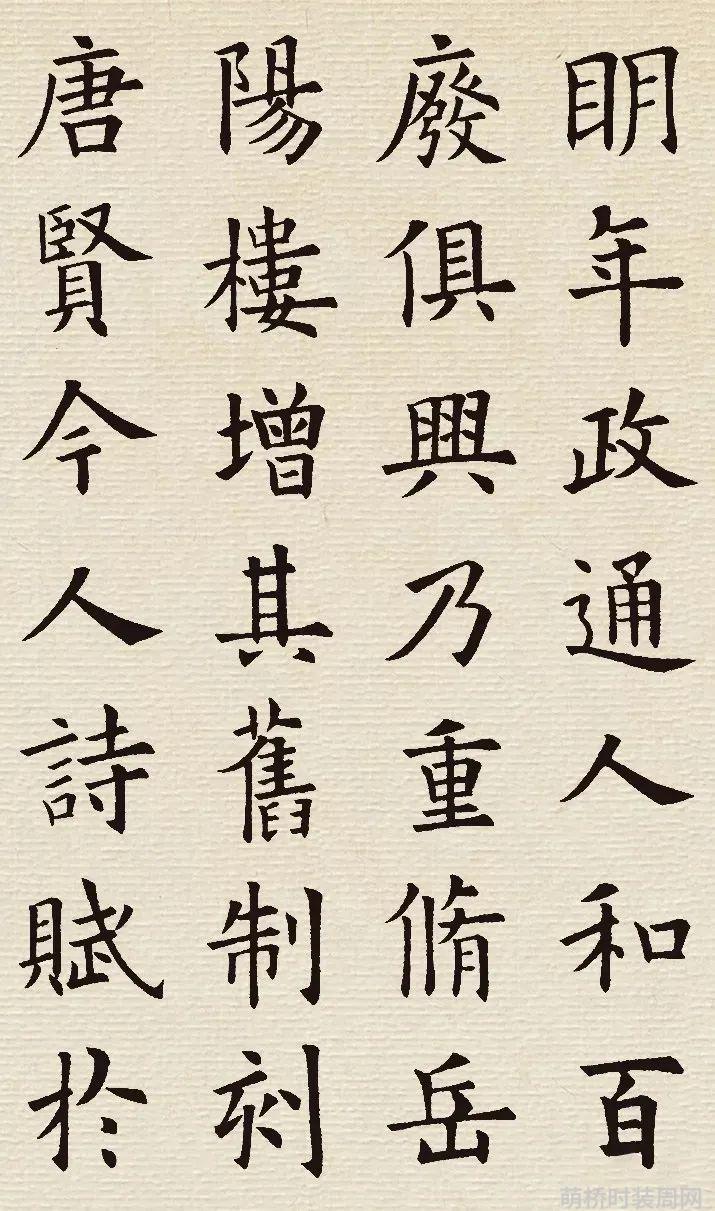 明年政通人和百
廢俱興乃重脩岳
陽樓增其舊制刻
唐賢今人詩賦於
萌桥时装周网